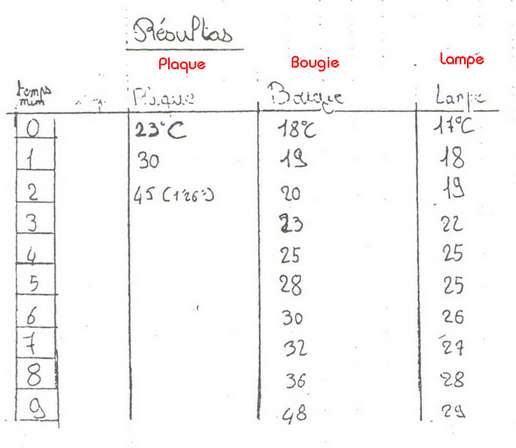 Résultas
Plaque Bougie Lampe
temps
min Plaque Bougie Lampe
0 23°C 18°C 17°C
1 30 19 18
2 45 (1'26") 20 19
3 23 22
4 25 25
5 28 25
6 30 26
7 32 27
8 36 28
9 48 29